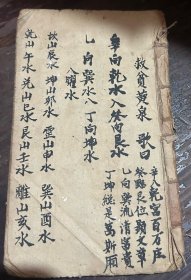 救貧黃泉 歌曰
辛入乾宮百万庄
癸歸艮位顕文章
乙向巽流清富貴
丁坤終是萬斯箱
辛向乾水 入癸向艮水
乙向巽水 八丁向坤水
八曜水
坎山辰水 坤山卯水 震山申水 巽山酉水
乾山午水 兌山巳水 艮山壬水 離山亥水